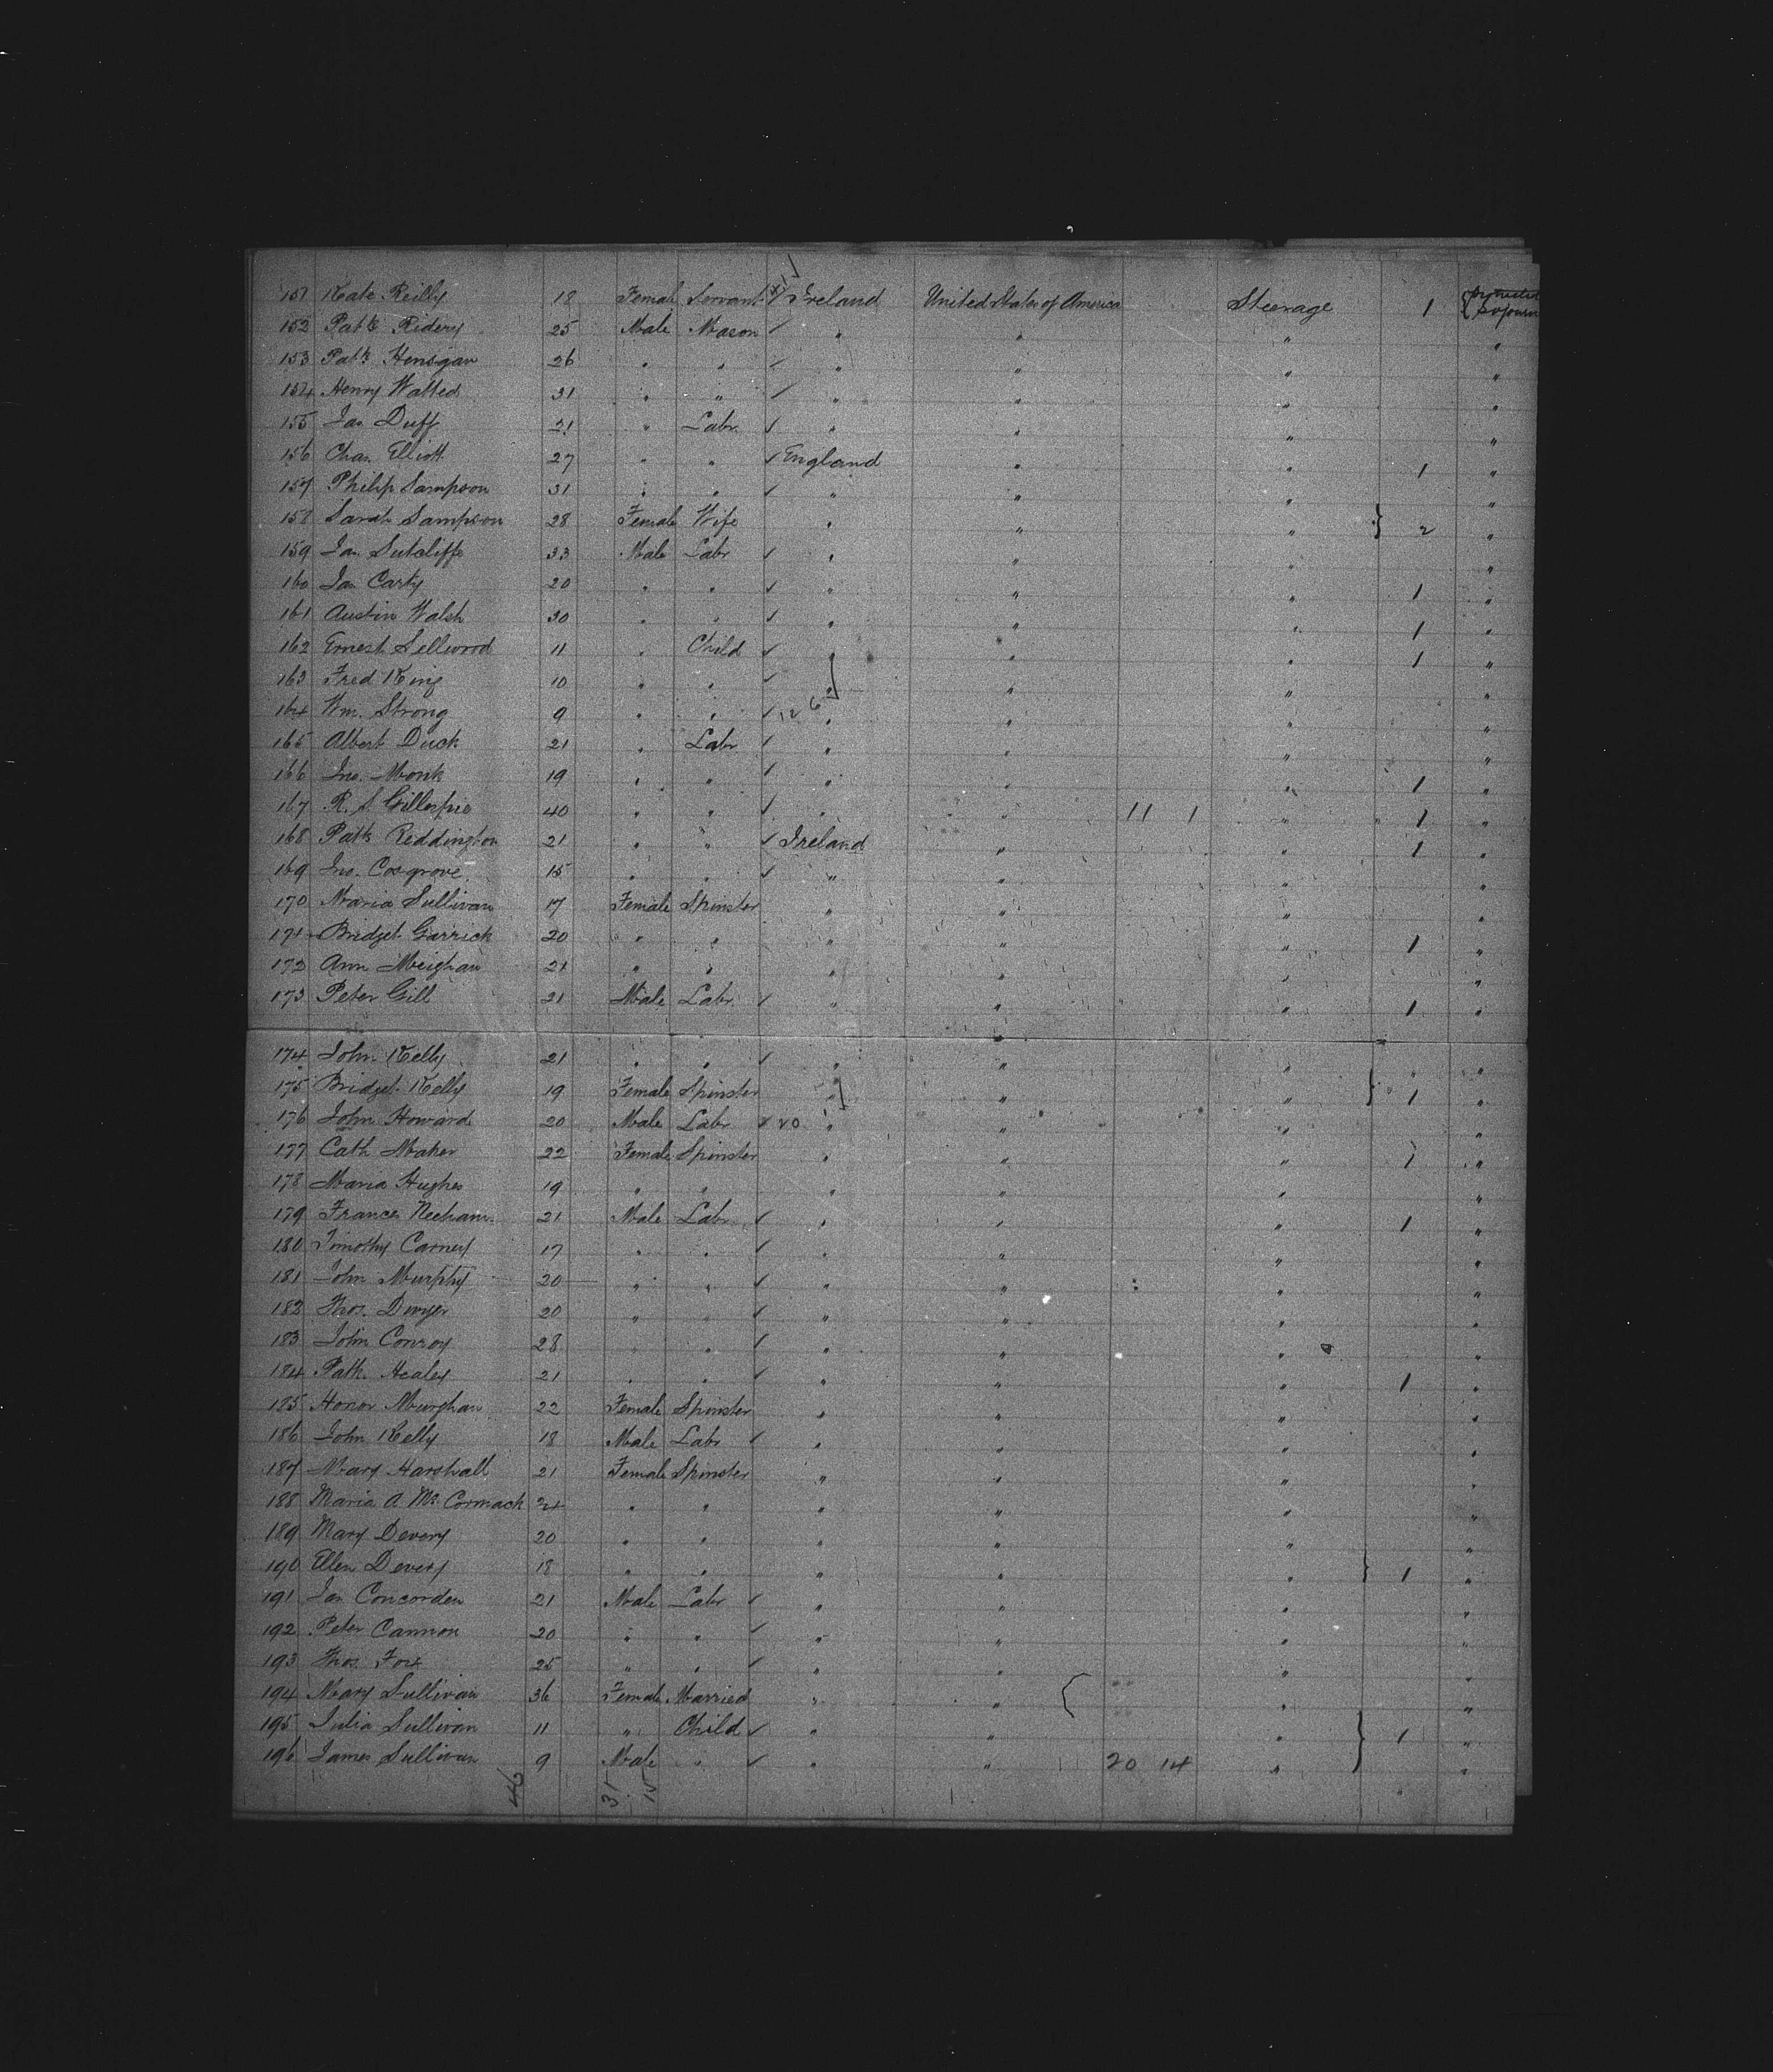 151 Kate Reilly 18 Female Servant Ireland United States of America Steerage 1
152 Patk Ridery 25 Male Mason " " " "
153 Patk Henigan 26 " " " " " "
154 Henry Watted 31 " " " " " "
155 Jas Duff 21 " Labr. " " " "
156 Chas. Elliott 27 " " England " " 1 "
157 Philip Sampson 31 " " " " " "
158 Sarah Sampson 28 Female Wife " " " } 2 "
159 Jas. Sutcliffe 33 Male Labr " " " "
160 Jas Carty 20 " " " " " 1 "
161 Austin Walsh 30 " " " " " 1 "
162 Ernest Sellwood 11 " Child " " " 1 "
163 Fred King 10 " " " " " "
164 Wm. Strong 9 " " 12 6 " " " "
165 Albert Duck 21 " Labr " " " "
166 Jno. Monk 19 " " " " " 1 "
167 R. S Gillespie 40 " " " " 11 1 " 1 "
168 Patk Reddington 21 " " Ireland " " 1 "
169 Jno. Cosgrove 15 " " " " " "
170 Maria Sullivan 17 Female Spinster " " " "
171 Bridget Garrick 20 " " " " " 1 "
172 Ann Meighan 21 " " " " " "
173 Peter Gill 21 Male Labr. " " " 1 "
174 John Kelly 21 " " " " " "
175 Bridget Kelly 19 Female Spinster " " " } 1 "
176 John Howard 20 Male Labr 20 " " " "
177 Cath Maher 22 Female Spinster " " " 1 "
178 Maria Hughes 19 " " " " " "
179 Frances Neeham 21 Male Labr " " " 1 "
180 Timothy Carney 17 " " " " " "
181 John Murphy 20 " " " " " "
182 Thos. Dwyer 20 " " " " " "
183 John Conroy 28 " " " " " "
184 Patk. Healey 21 " " " " " 1 "
185 Honor Murghan 22 Female Spinster " " " "
186 John Kelly 18 Male Labr " " " "
187 Mary Harshall 21 Female Spinster " " " "
188 Maria A. McCormack 21 " " " " " "
189 Mary Devery 20 " " " " " "
190 Ellen Devery 18 " " " " " } 1 "
191 Jas Concorden 21 Male Labr " " " "
192 Peter Cannon 20 " " " " " "
193 Thos. Fox 25 " " " " " "
194 Mary Sullivan 36 Female Married " " " "
195 Julia Sullivan 11 " Child " " " } 1 "
196 James Sullivan 9 Male " " " 20 14 " "
46 31 15